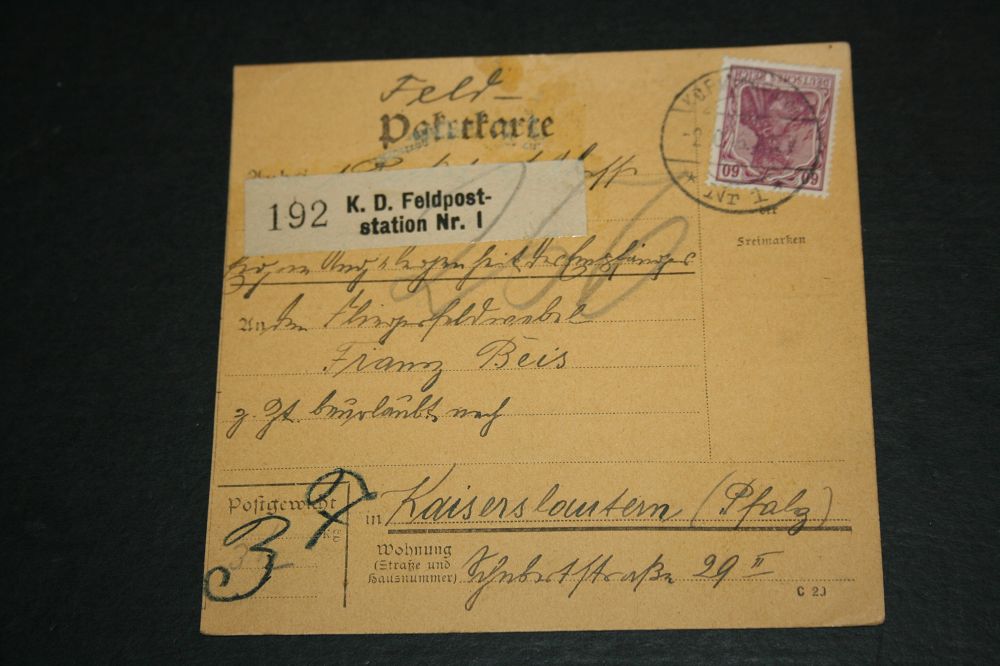 Feld-
Paketkarte
DEUTSCHES REICH
60 60
192 K. D. Feldpost-
station Nr. I
Freimarken
256
An den Fliegerfeldwebel
Franz Beis
z. Zt. beurlaubt nach
Postgewicht
kg
in Kaiserslautern (Pfalz)
Wohnung
(Straße und
Hausnummer) Schubertstraße 29 II
C 20